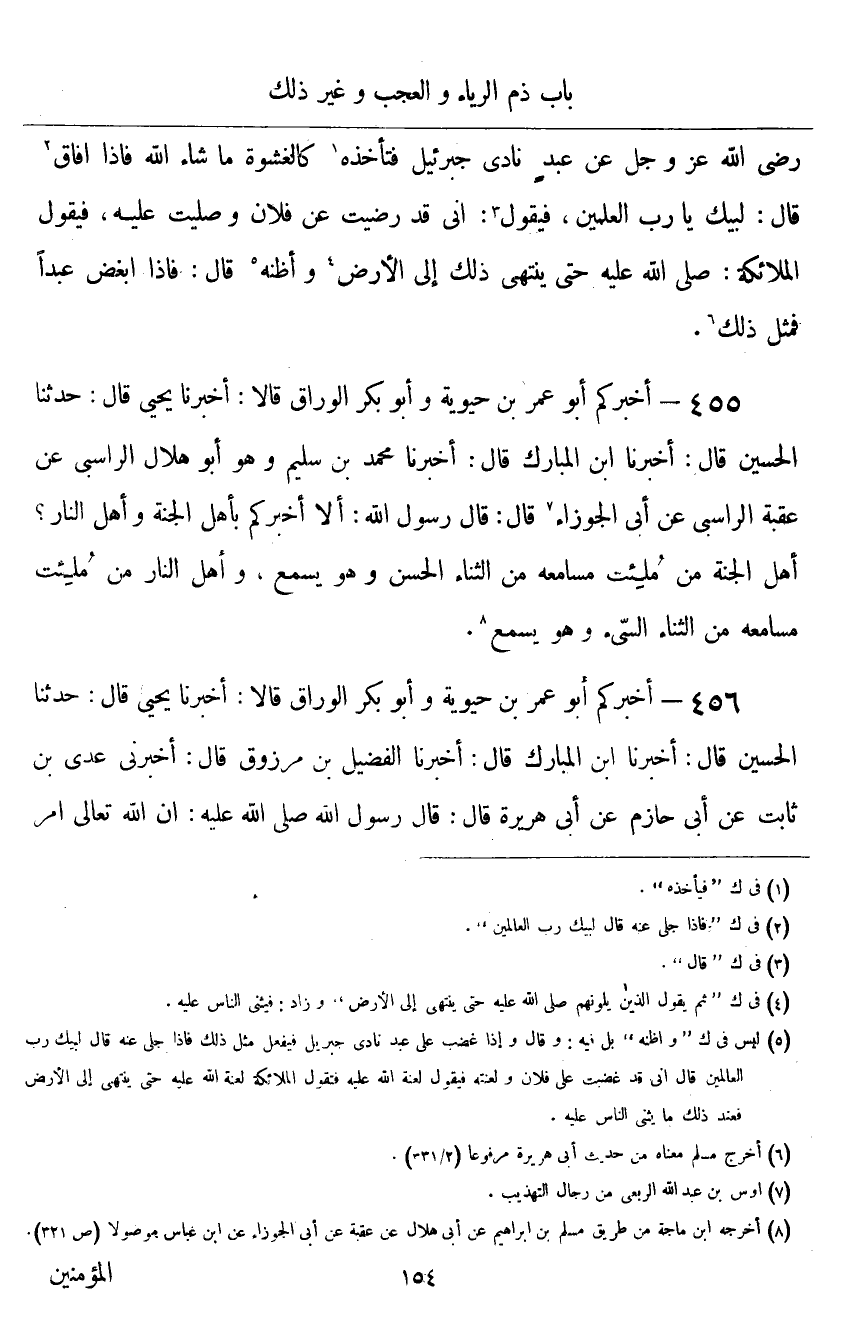 باب ذم الرياء و العجب و غير ذلك
رضى الله عز و جل عن عبد نادى جبرئيل فتأخذه١ كالغشوة ما شاء الله فاذا افاق٢
قال : لبيك يا رب العلمين ، فيقول٣ : انى قد رضيت عن فلان و صليت عليه ، فيقول
الملائكة : صلى الله عليه حتى ينتهى ذلك إلى الأرض٤ و أظنه٥ قال : فاذا ابغض عبداً
فمثل ذلك٦ .
٤٥٥ – أخبركم أبو عمر بن حيوية و أبو بكر الوراق قالا : أخبرنا يحيى قال : حدثنا
الحسين قال : أخبرنا ابن المبارك قال : أخبرنا محمد بن سليم و هو أبو هلال الراسبى عن
عقبة الراسبى عن أبى الجوزاء٧ قال : قال رسول الله : ألا أخبركم بأهل الجنة و أهل النار ؟
أهل الجنة من مُليئت مسامعه من الثناء الحسن و هو يسمع ، و أهل النار من مُليئت
مسامعه من الثناء السّىء و هو يسمع٨ .
٤٥٦ – أخبركم أبو عمر بن حيوية و أبو بكر الوراق قالا : أخبرنا يحيى قال : حدثنا
الحسين قال : أخبرنا ابن المبارك قال : أخبرنا الفضيل بن مرزوق قال : أخبرنى عدى بن
ثابت عن أبى حازم عن أبى هريرة قال : قال رسول الله صلى الله عليه : ان الله تعالى امر
(١) فى ك ”فيأخذه“ .
(٢) فى ك ”فاذا جلى عنه قال لبيك رب العالمين“ .
(٣) فى ك ”قال“ .
(٤) فى ك ”ثم يقول الذين يلونهم صلى الله عليه حتى ينتهى إلى الأرض“ و زاد : فيثنى الناس عليه .
(٥) ليس فى ك ”و اظنه“ بل فيه : و قال و إذا غضب على عبد نادى جبريل فيفعل مثل ذلك فاذا جلى عنه قال لبيك رب
العالمين قال انى قد غضبت على فلان و لعنته فيقول لعنة الله عليه فتقول الملائكة لعنة الله عليه حتى ينتهى إلى الأرض
فعند ذلك ما يثنى الناس عليه .
(٦) أخرج مسلم معناه من حديث أبى هريرة مرفوعا (٣٣١/٢) .
(٧) اوس بن عبد الله الربعى من رجال التهذيب .
(٨) أخرجه ابن ماجة من طريق مسلم بن ابراهيم عن أبى هلال عن عقبة عن أبى الجوزاء عن ابن عباس موصولا (ص ٣٢١).
١٥٤ المؤمنين